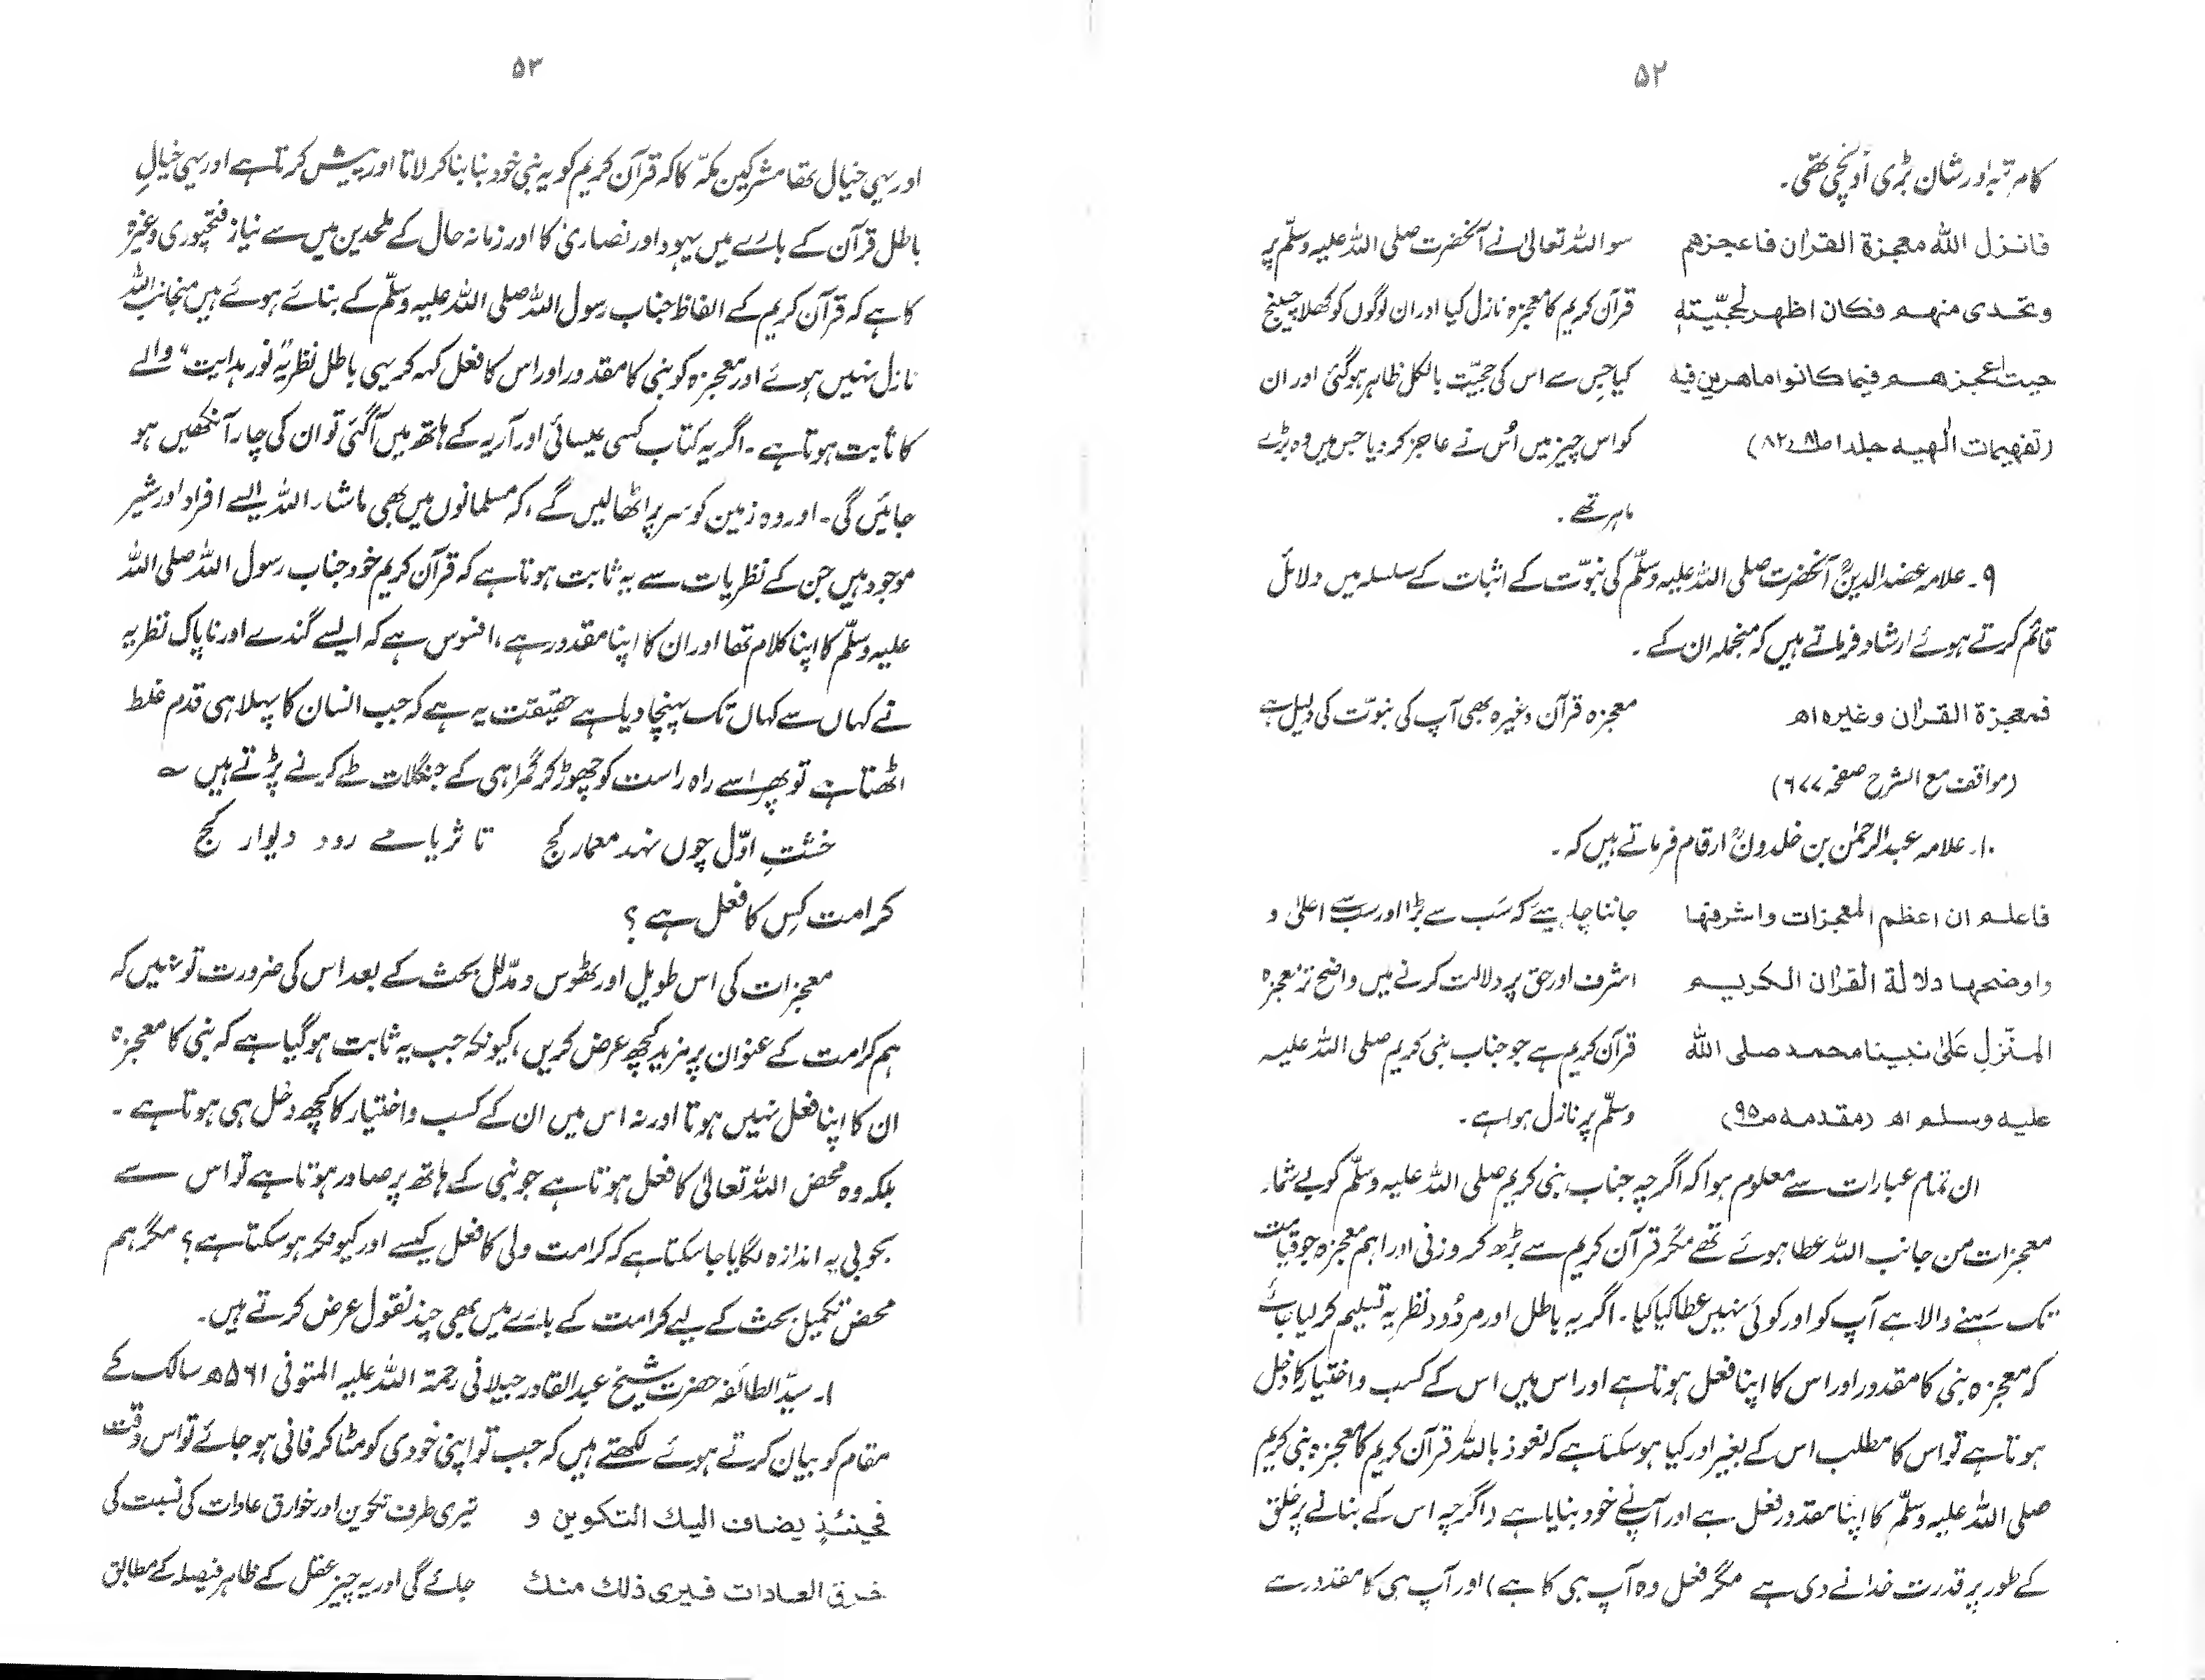 ۵۲
کا مرتبہ اور شان بڑی اُونچی تھی۔
فانزل اللہ معجزة القراٰن فاعجزهم
وتحدی منهم فکان اظهر لحجّیّتہٖ
حیث اعجزهم فیما کانوا ماهرین فیہ
(تفہیمات الٰہیہ جلد ا ص۸۲)
سو اللہ تعالیٰ نے آنحضرت صلی اللہ علیہ وسلّم پر
قرآن کریم کا معجزہ نازل کیا اور ان لوگوں کو کھلا چیلنج
کیا جس سے اس کی حجیّت بالکل ظاہر ہوگئی اور ان
کو اس چیز میں اُس نے عاجز کر دیا جس میں وہ بڑے
ماہر تھے۔
۹۔ علامہ عضد الدینؒ آنحضرت صلی اللہ علیہ وسلّم کی نبوّت کے اثبات کے سلسلہ میں دلائل
قائم کرتے ہوئے ارشاد فرماتے ہیں کہ منجملہ ان کے۔
فمعجزة القراٰن وغیرہ اھ
(مواقف مع الشرح صفحہ ۶۷۷)
معجزہ قرآن وغیرہ بھی آپ کی نبوّت کی دلیل ہے
۱۰۔ علامہ عبدالرحمٰن بن خلدونؒ ارقام فرماتے ہیں کہ۔
فاعلم ان اعظم المعجزات واشرفها
واوضحها دلالة القراٰن الکریم
المنزّل علیٰ نبینا محمد صلی اللہ
علیہ وسلم اھ (مقدمہ ص۹۵)
جاننا چاہیئے کہ سَب سے بڑا اور سب سے اعلیٰ و
اشرف اور حق پر دلالت کرنے میں واضح تر معجزہ
قرآن کریم ہے جو جناب نبی کریم صلی اللہ علیہ
وسلّم پر نازل ہوا ہے۔
ان تمام عبارات سے معلوم ہوا کہ اگرچہ جناب نبی کریم صلی اللہ علیہ وسلّم کو بے شمار
معجزات من جانب اللہ عطا ہوئے تھے مگر قرآن کریم سے بڑھ کر وزنی اور اہم معجزہ جو قیامت
تک رہنے والا ہے آپ کو اور کوئی نہیں عطا کیا گیا۔ اگر یہ باطل اور مردُود نظریہ تسلیم کر لیا جائے
کہ معجزہ نبی کا مقدور اور اس کا اپنا فعل ہوتا ہے اور اس میں اس کے کسب و اختیار کا دخل
ہوتا ہے تو اس کا مطلب اس کے بغیر اور کیا ہو سکتا ہے کہ نعوذ باللہ قرآن کریم کا معجزہ نبی کریم
صلی اللہ علیہ وسلّم کا اپنا مقدور فعل ہے اور آپ نے خود بنایا ہے (اگرچہ اس کے بنانے پر خلق
کے طور پر قدرت خدا نے دی ہے مگر فعل وہ آپ ہی کا ہے) اور آپ ہی کا مقدور ہے
۵۳
اور یہی خیال تھا مشرکین مکہّ کا کہ قرآن کریم کو یہ نبی خود بنا بنا کر لاتا اور پیش کرتا ہے اور یہی خیالِ
باطل قرآن کے بارے میں یہود اور نصاریٰ کا اور زمانہ حال کے ملحدین میں سے نیاز فتحپوری وغیرہ
کا ہے کہ قرآن کریم کے الفاظ جناب رسول اللہ صلی اللہ علیہ وسلّم کے بنائے ہوئے ہیں منجانب اللہ
نازل نہیں ہوئے اور معجزہ کو نبی کا مقدور اور اس کا فعل کہہ کر یہی باطل نظریہ ”نورِ ہدایت“ والے
کا ثابت ہوتا ہے۔ اگر یہ کتاب کسی عیسائی اور آریہ کے ہاتھ میں آگئی تو ان کی چار آنکھیں ہو
جائیں گی۔ اور وہ زمین کو سر پر اٹھا لیں گے، کہ مسلمانوں میں بھی ماشاء اللہ ایسے افراد اور شیر
موجود ہیں جن کے نظریات سے یہ ثابت ہوتا ہے کہ قرآن کریم خود جناب رسول اللہ صلی اللہ
علیہ وسلّم کا اپنا کلام تھا اور ان کا اپنا مقدور ہے، افسوس ہے کہ ایسے گندے اور ناپاک نظریہ
نے کہاں سے کہاں تک پہنچا دیا ہے حقیقت یہ ہے کہ جب انسان کا پہلا ہی قدم غلط
اٹھتا ہے تو پھر اسے راہ راست کو چھوڑ کر گمراہی کے جنگلات طے کرنے پڑتے ہیں ؎
خشتِ اوّل چوں نہد معمار کج تا ثریا مے رود دیوار کج
کرامت کِس کا فعل ہے ؟
معجزات کی اس طویل اور ٹھوس و مدّلل بحث کے بعد اس کی ضرورت تو نہیں کہ
ہم کرامت کے عنوان پر مزید کچھ عرض کریں، کیونکہ جب یہ ثابت ہوگیا ہے کہ نبی کا معجزہ
ان کا اپنا فعل نہیں ہوتا اور نہ اس میں ان کے کسب و اختیار کا کچھ دخل ہی ہوتا ہے۔
بلکہ وہ محض اللہ تعالیٰ کا فعل ہوتا ہے جو نبی کے ہاتھ پر صادر ہوتا ہے تو اس سے
بخوبی یہ اندازہ لگایا جا سکتا ہے کہ کرامت ولی کا فعل کیسے اور کیونکر ہو سکتا ہے؟ مگر ہم
محض تکمیل بحث کے لیے کرامت کے بارے میں بھی چند نقول عرض کرتے ہیں۔
۱۔ سیّد الطائفہ حضرت شیخ عبدالقادر جیلانی رحمة اللہ علیہ المتوفی ۵۶۱ھ سالک کے
مقام کو بیان کرتے ہوئے لکھتے ہیں کہ جب تو اپنی خودی کو مٹا کر فانی ہو جائے تو اس وقت
فحینئذٍ یضاف الیك التکوین و
خرق العادات فیری ذلك منك
تیری طرف تکوین اور خوارق عادات کی نسبت کی
جائے گی اور یہ چیز عقل کے ظاہر فیصلہ کے مطابق